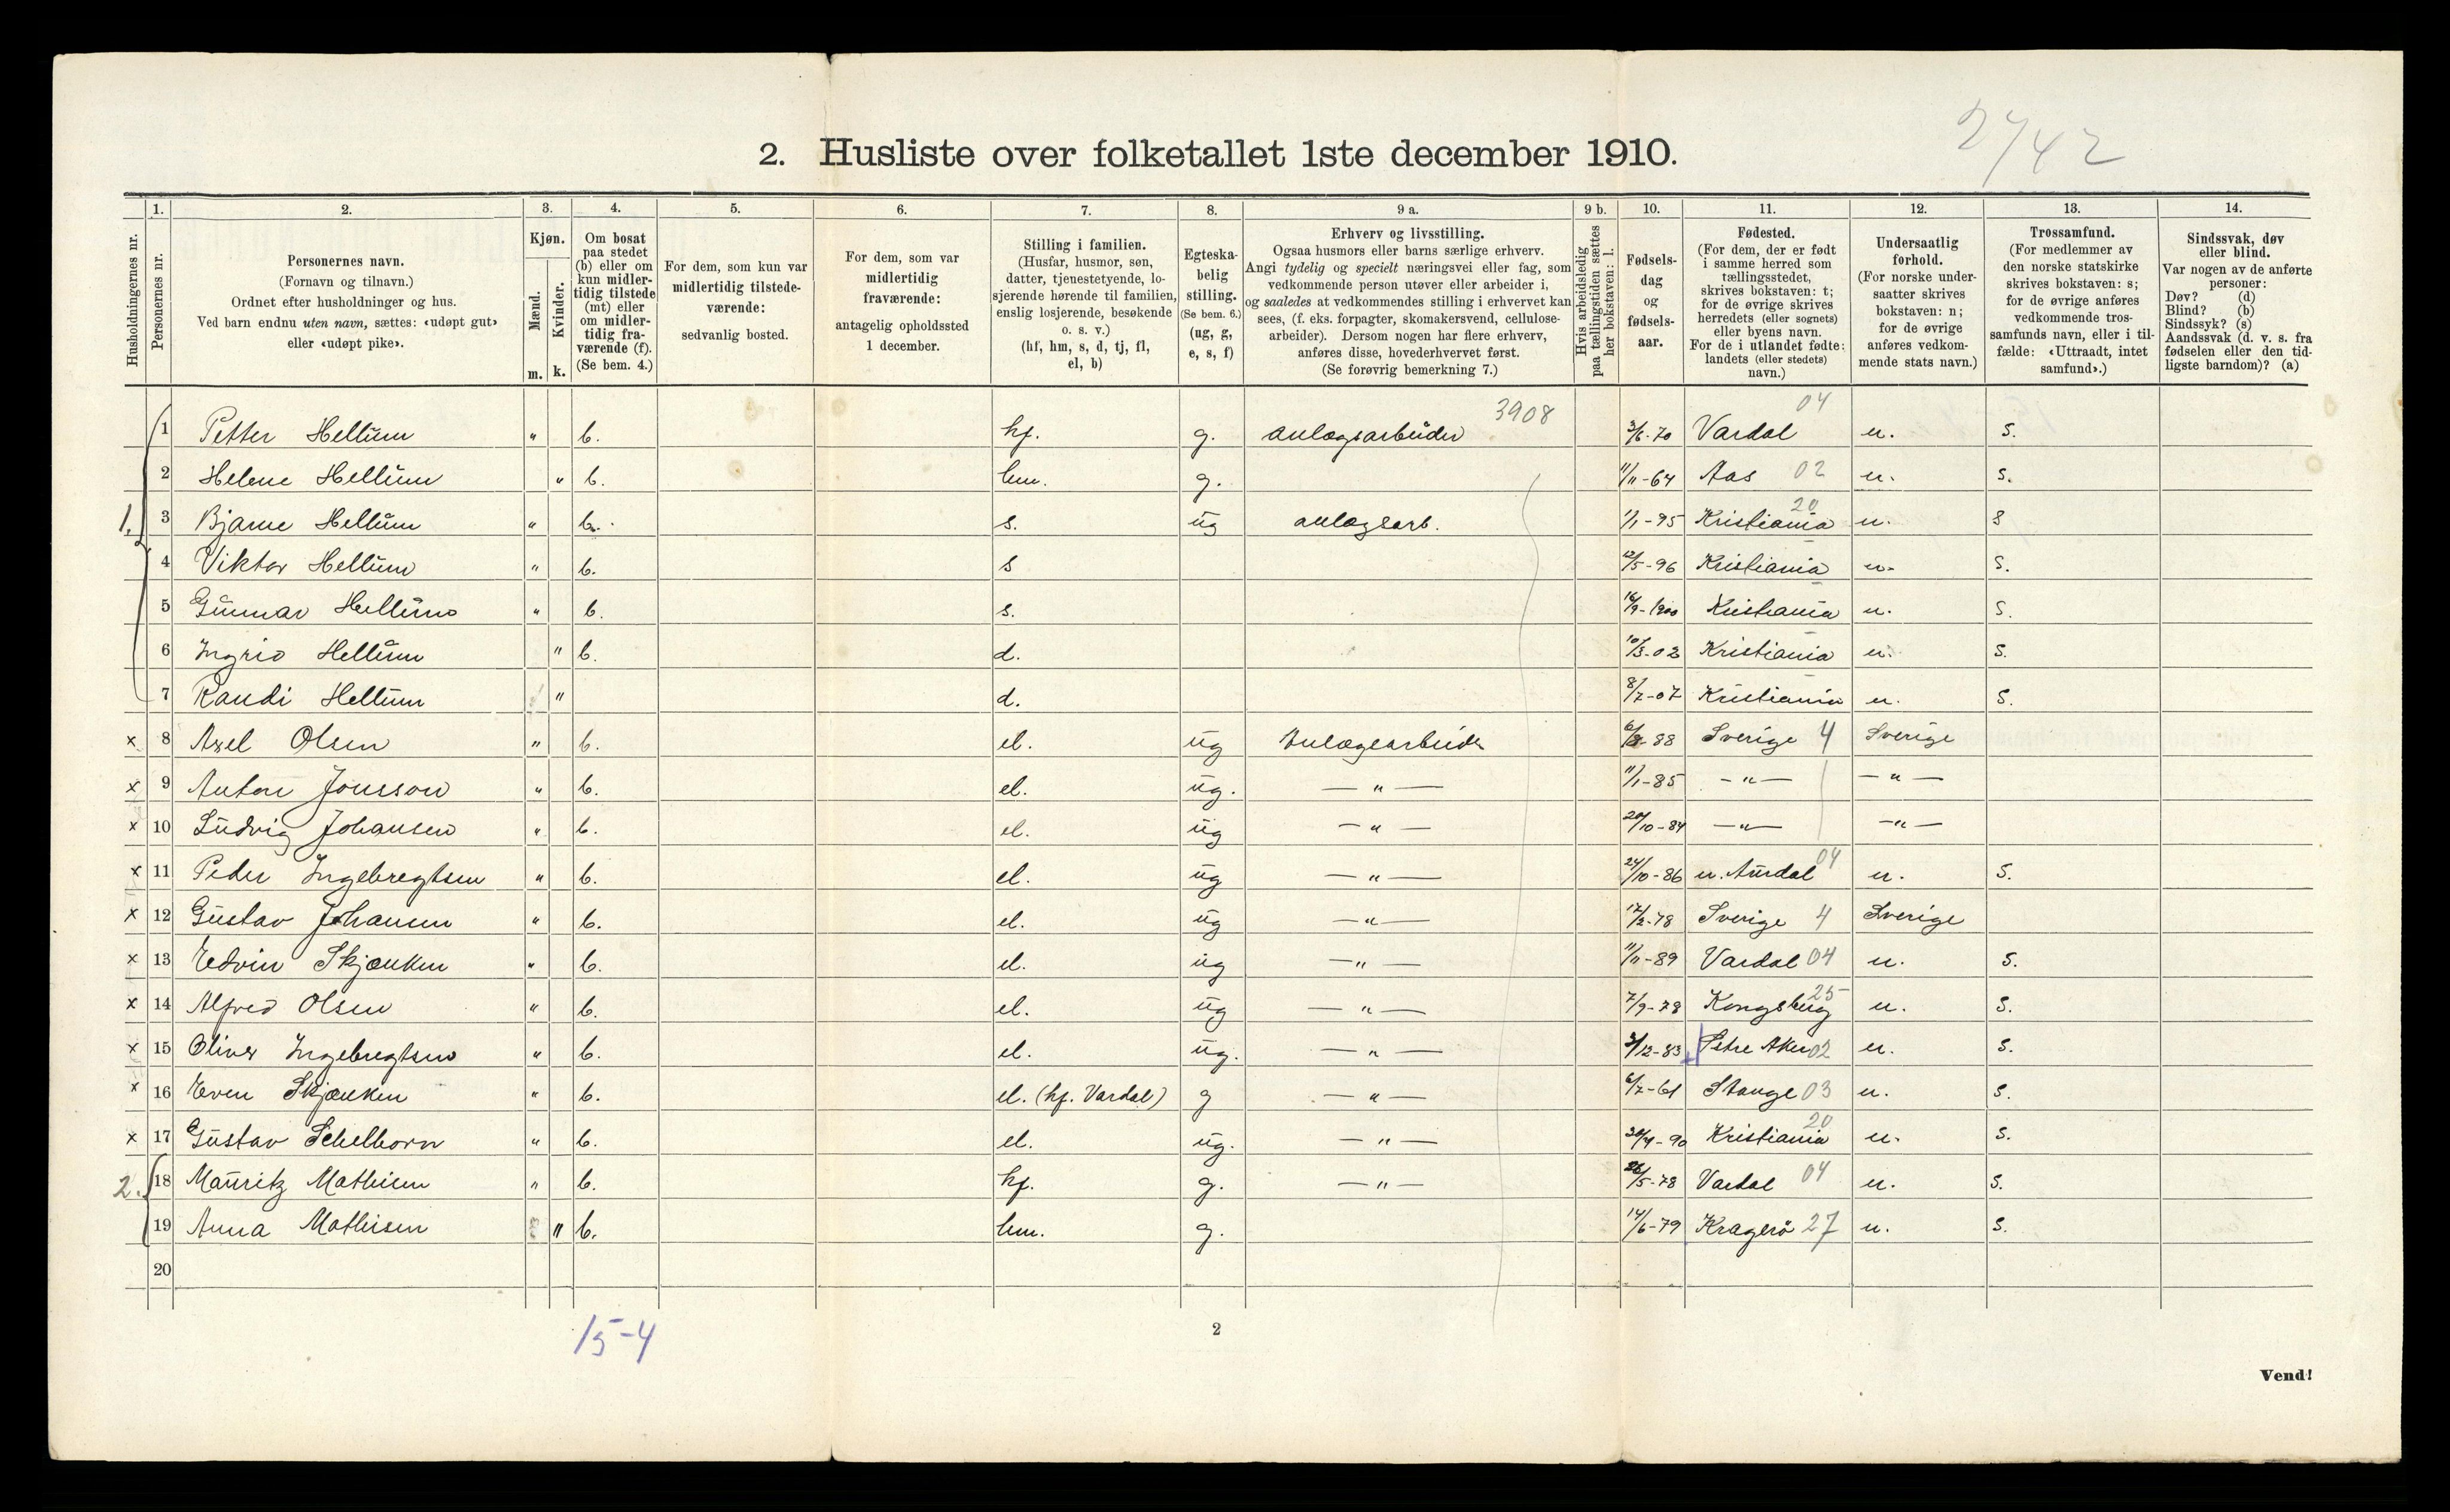 2742
2. Husliste over folketallet 1ste december 1910.
Husholdningernes nr. | 1. Personernes nr. | 2. Personernes navn. (Fornavn og tilnavn.) Ordnet efter husholdninger og hus. Ved barn endnu uten navn, sættes: «udøpt gut» eller «udøpt pike». | 3. Kjøn. Mænd. m. Kvinder. k. | 4. Om bosat paa stedet (b) eller om kun midlertidig tilstede (mt) eller om midlertidig fraværende (f). (Se bem. 4.) | 5. For dem, som kun var midlertidig tilstedeværende: sedvanlig bosted. | 6. For dem, som var midlertidig fraværende: antagelig opholdssted 1 december. | 7. Stilling i familien. (Husfar, husmor, søn, datter, tjenestetyende, losjerende hørende til familien, enslig losjerende, besøkende o. s. v.) (hf, hm, s, d, tj, fl, el, b) | 8. Egteskabelig stilling. (Se bem. 6.) (ug, g, e, s, f) | 9 a. Erhverv og livsstilling. Ogsaa husmors eller barns særlige erhverv. Angi tydelig og specielt næringsvei eller fag, som vedkommende person utøver eller arbeider i, og saaledes at vedkommendes stilling i erhvervet kan sees, (f. eks. forpagter, skomakersvend, cellulosearbeider). Dersom nogen har flere erhverv, anføres disse, hovederhvervet først. (Se forøvrig bemerkning 7.) | 9 b. Hvis arbeidsledig paa tællingstiden sættes her bokstaven: l. | 10. Fødselsdag og fødselsaar. | 11. Fødested. (For dem, der er født i samme herred som tællingsstedet, skrives bokstaven: t; for de øvrige skrives herredets (eller sognets) eller byens navn. For de i utlandet fødte: landets (eller stedets) navn.) | 12. Undersaatlig forhold. (For norske undersaatter skrives bokstaven: n; for de øvrige anføres vedkommende stats navn.) | 13. Trossamfund. (For medlemmer av den norske statskirke skrives bokstaven: s; for de øvrige anføres vedkommende trossamfunds navn, eller i tilfælde: «Uttraadt, intet samfund».) | 14. Sindssvak, døv eller blind. Var nogen av de anførte personer: Døv? (d) Blind? (b) Sindssyk? (s) Aandssvak (d. v. s. fra fødselen eller den tidligste barndom)? (a)
1 Petter Hellum " b. hf. g. anlægsarbeider 3908 3/6-70 Vardal 04 n. s.
2 Helene Hellum " b. hm. g. 11/11-64 Aas 02 n. s.
1. 3 Bjarne Hellum " b. s. ug anlægsarb. 1/1-95 Kristiania 20 n. s
4 Viktor Hellum " b. s 12/5-96 Kristiania n. s.
5 Gunnar Hellum " b. s. 16/9-1900 Kristiania n. s.
6 Ingrid Hellum " b. d. 10/3-02 Kristiania n. s.
7 Randi Hellum " d. 8/7-07 Kristiania n. s.
x 8 Axel Olsen " b. el. ug Anlægsarbeider 6/8-88 Sverige 4 Sverige
x 9 Anton Jonsson " b. el. ug. — " — 11/1-85 — " — — " —
x 10 Ludvig Johansen " b. el. ug — " — 20/10-84 — " — — " —
x 11 Peder Ingebregtsen " b. el. ug — " — 24/10-86 n. Aurdal 04 n. s.
x 12 Gustav Johansen " b. el. ug — " — 17/2-78 Sverige 4 Sverige
x 13 Edvin Skjønken " b. el. ug — " — 11/11-89 Vardal 04 n. s.
x 14 Alfred Olsen " b. el. ug — " — 7/9-78 Kongsberg 25 n. s.
x 15 Oliver Ingebregtsen " b. el. ug. — " — 3/12-83 Østre Aker 02 n. s.
x 16 Even Skjønken " b. el. (hf. Vardal) g — " — 6/7-61 Stange 03 n. s.
x 17 Gustav Schelhorn " b. el. ug. — " — 20/4-90 Kristiania 20 n. s.
2. 18 Mauritz Mathisen " b. hf. g. — " — 26/5-78 Vardal 04 n. s.
19 Anna Mathisen " b. hm. g. 14/6-79 Kragerö 27 n. s.
20
15-4
2
Vend!